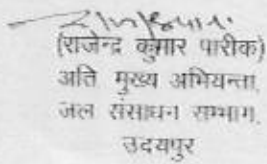 (राजेन्द्र कुमार पारीक)
अति मुख्य अभियन्ता,
जल संसाधन सम्भाग,
उदयपुर